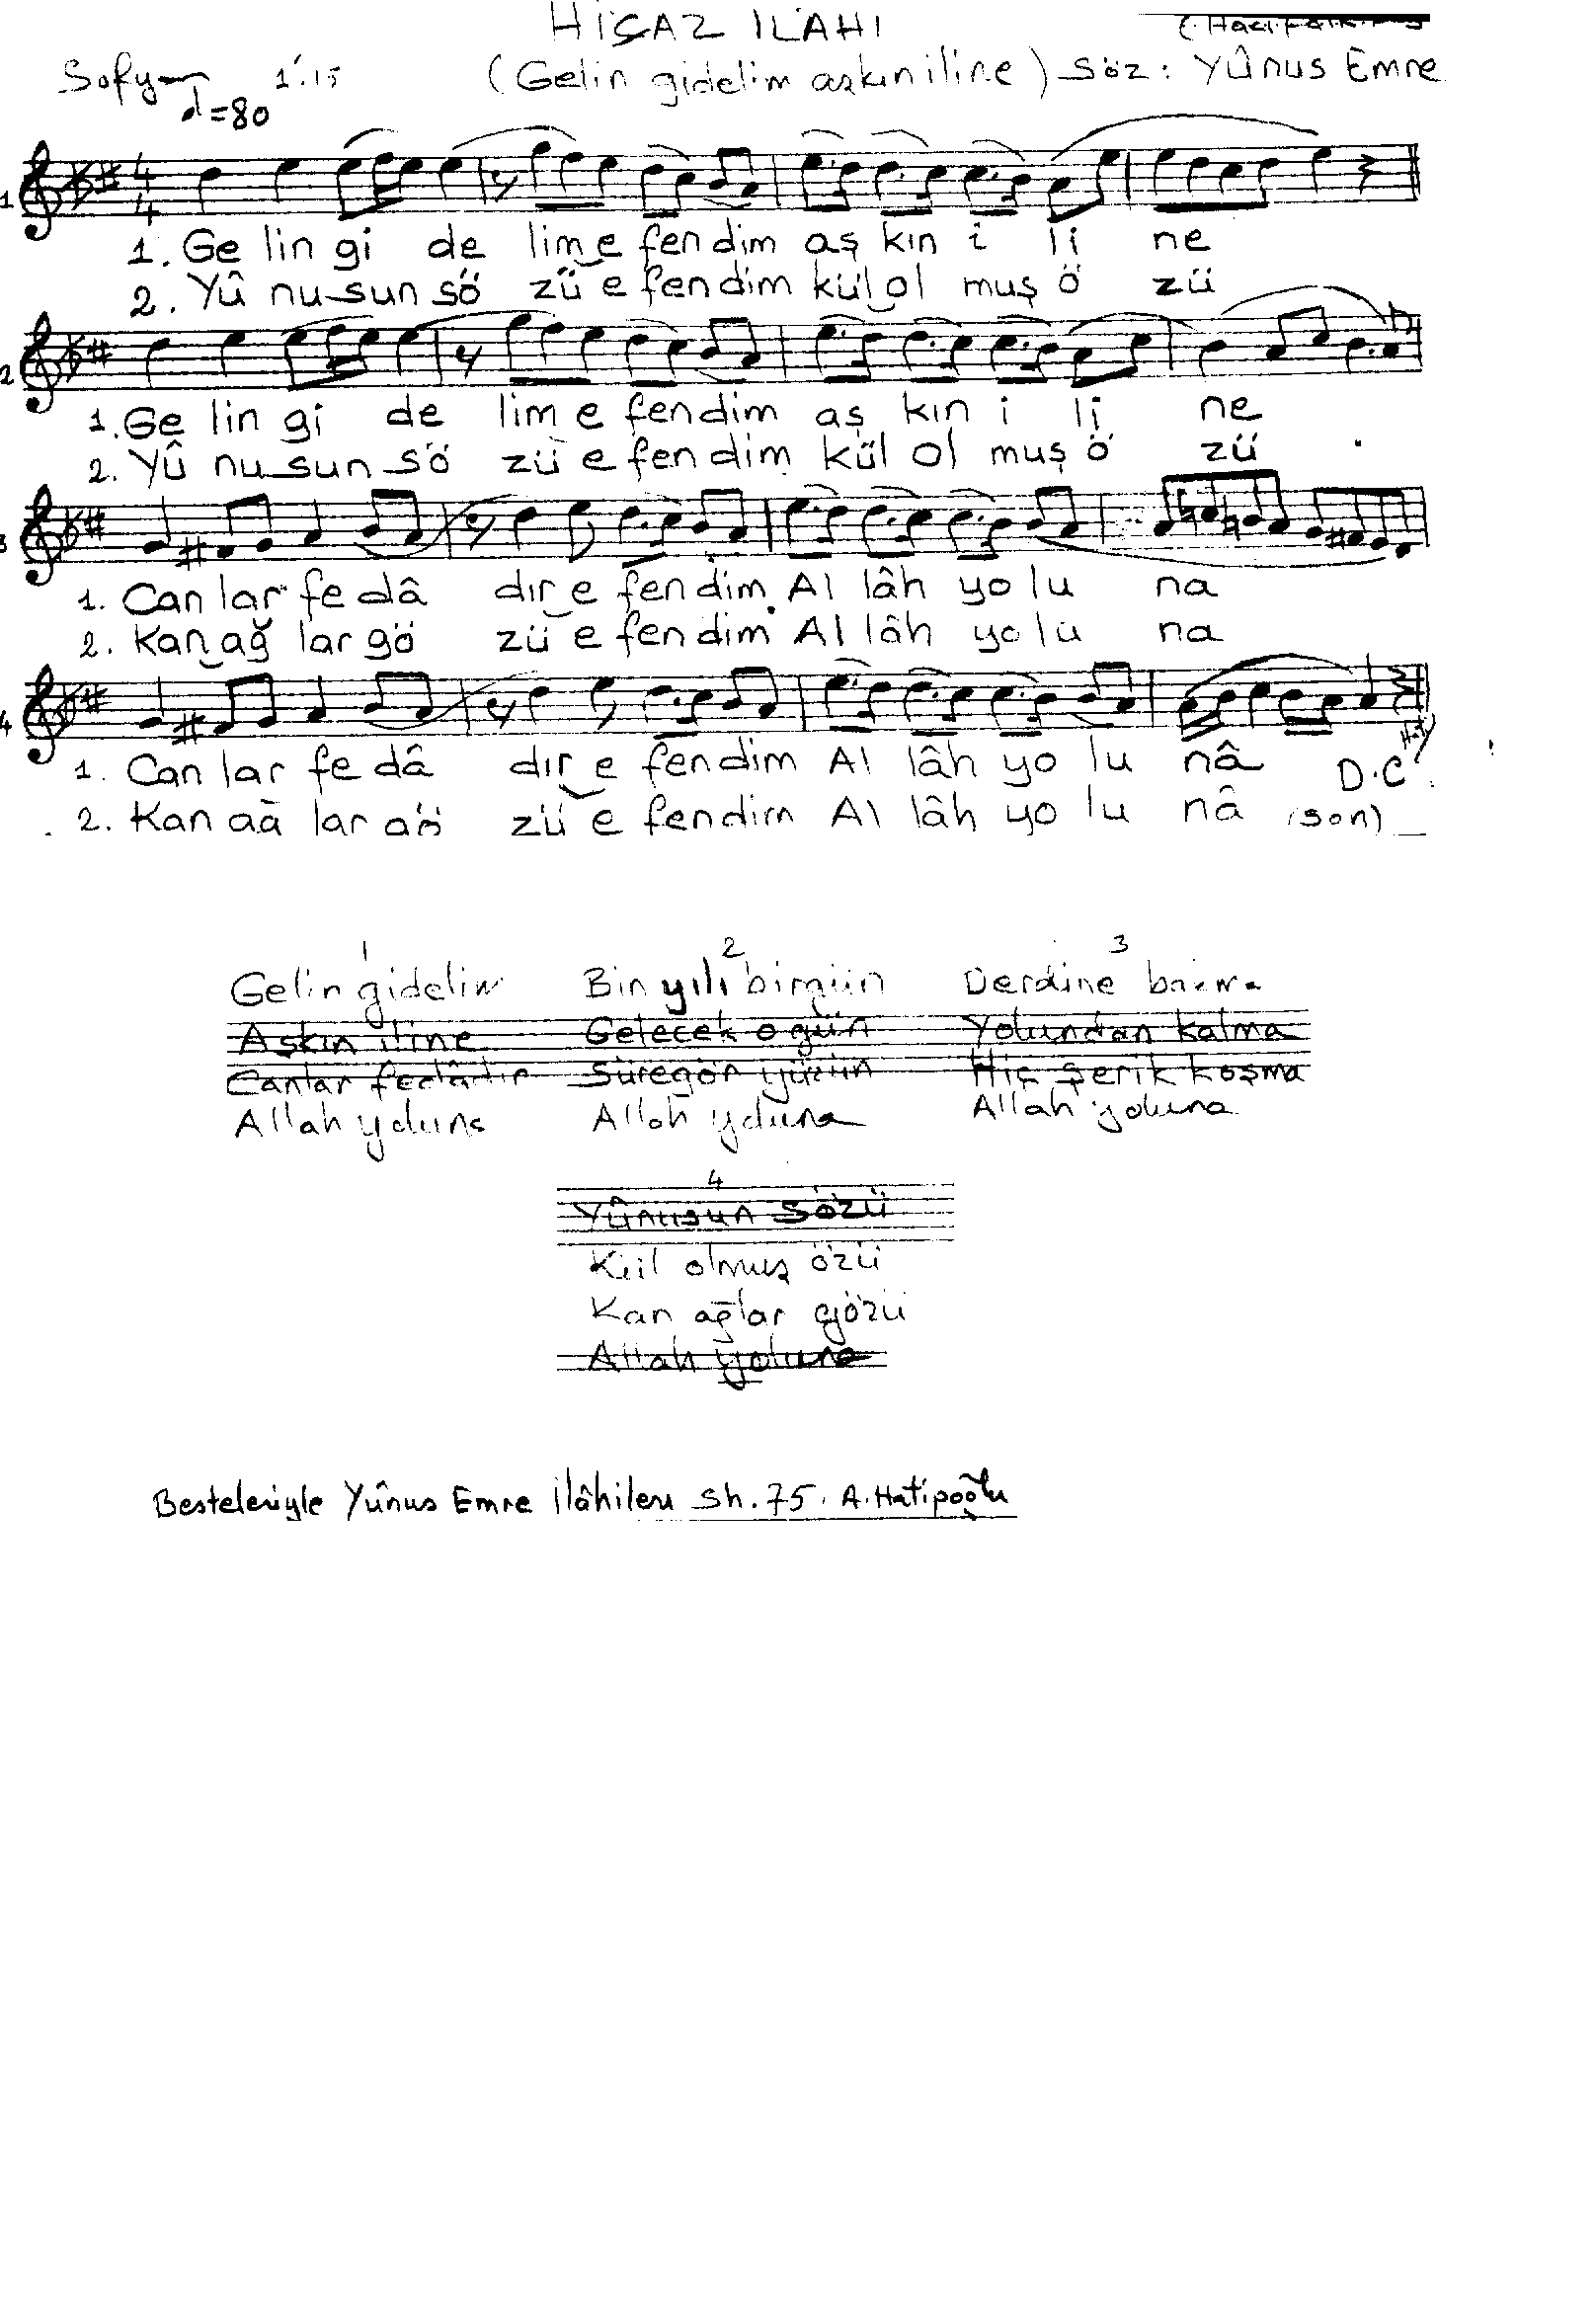 HİCAZ İLÂHİ
Sofyan 1'.15 (Gelin gidelim aşkın iline) Söz: Yûnus Emre
=80
4
4
1
1. Ge lin gi de lim e fen dim aş kın i li ne
2. Yû nu sun sö zü e fen dim kül ol muş ö zü
2
1. Ge lin gi de lim e fen dim aş kın i li ne
2. Yû nu sun sö zü e fen dim kül ol muş ö zü
3
1. Can lar fe dâ dır e fen dim Al lâh yo lu na
2. Kan ağ lar gö zü e fen dim Al lâh yo lu na
4
1. Can lar fe dâ dır e fen dim Al lâh yo lu nâ D.C
2. Kan ağ lar gö zü e fen dim Al lâh yo lu nâ (son)
1
Gelin gidelim
Aşkın iline
Canlar fedâdır
Allah yoluna
2
Bin yılı birgün
Gelecek o gün
Süregör yüzün
Allah yoluna
3
Derdine
Yolundan kalma
Hiç şerik koşma
Allah yoluna
4
Yûnusun sözü
Kül olmuş özü
Kan ağlar gözü
Allah yoluna
Besteleriyle Yûnus Emre İlâhileri Sh. 75. A. Hatipoğlu